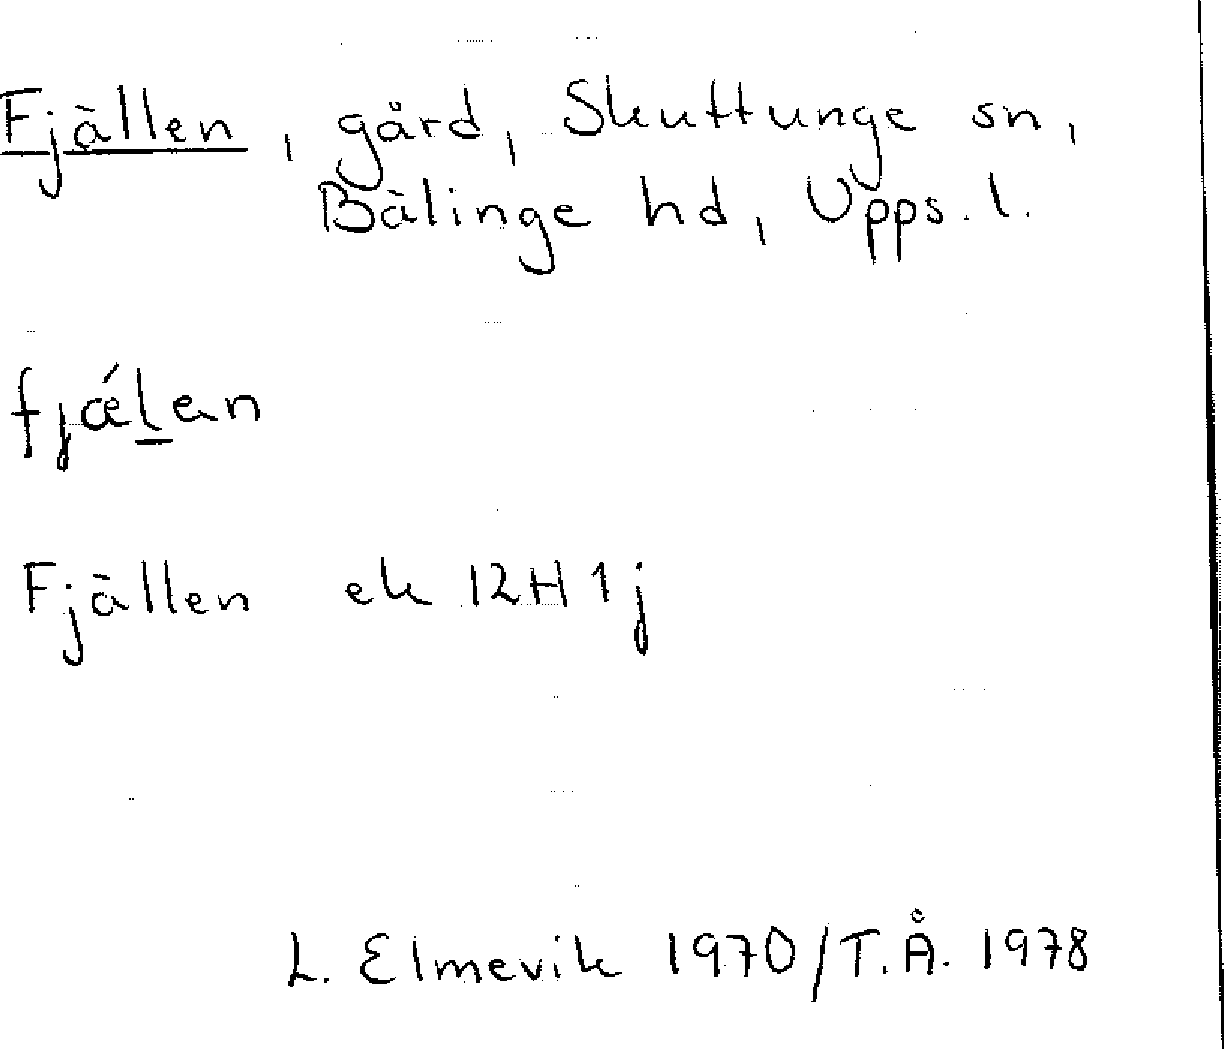 Fjällen, gård, Skuttunge sn,
Bälinge hd, Upps. l.
fjǽlan
Fjällen ek 12H 1j
L. Elmevik 1970/T.Å. 1978